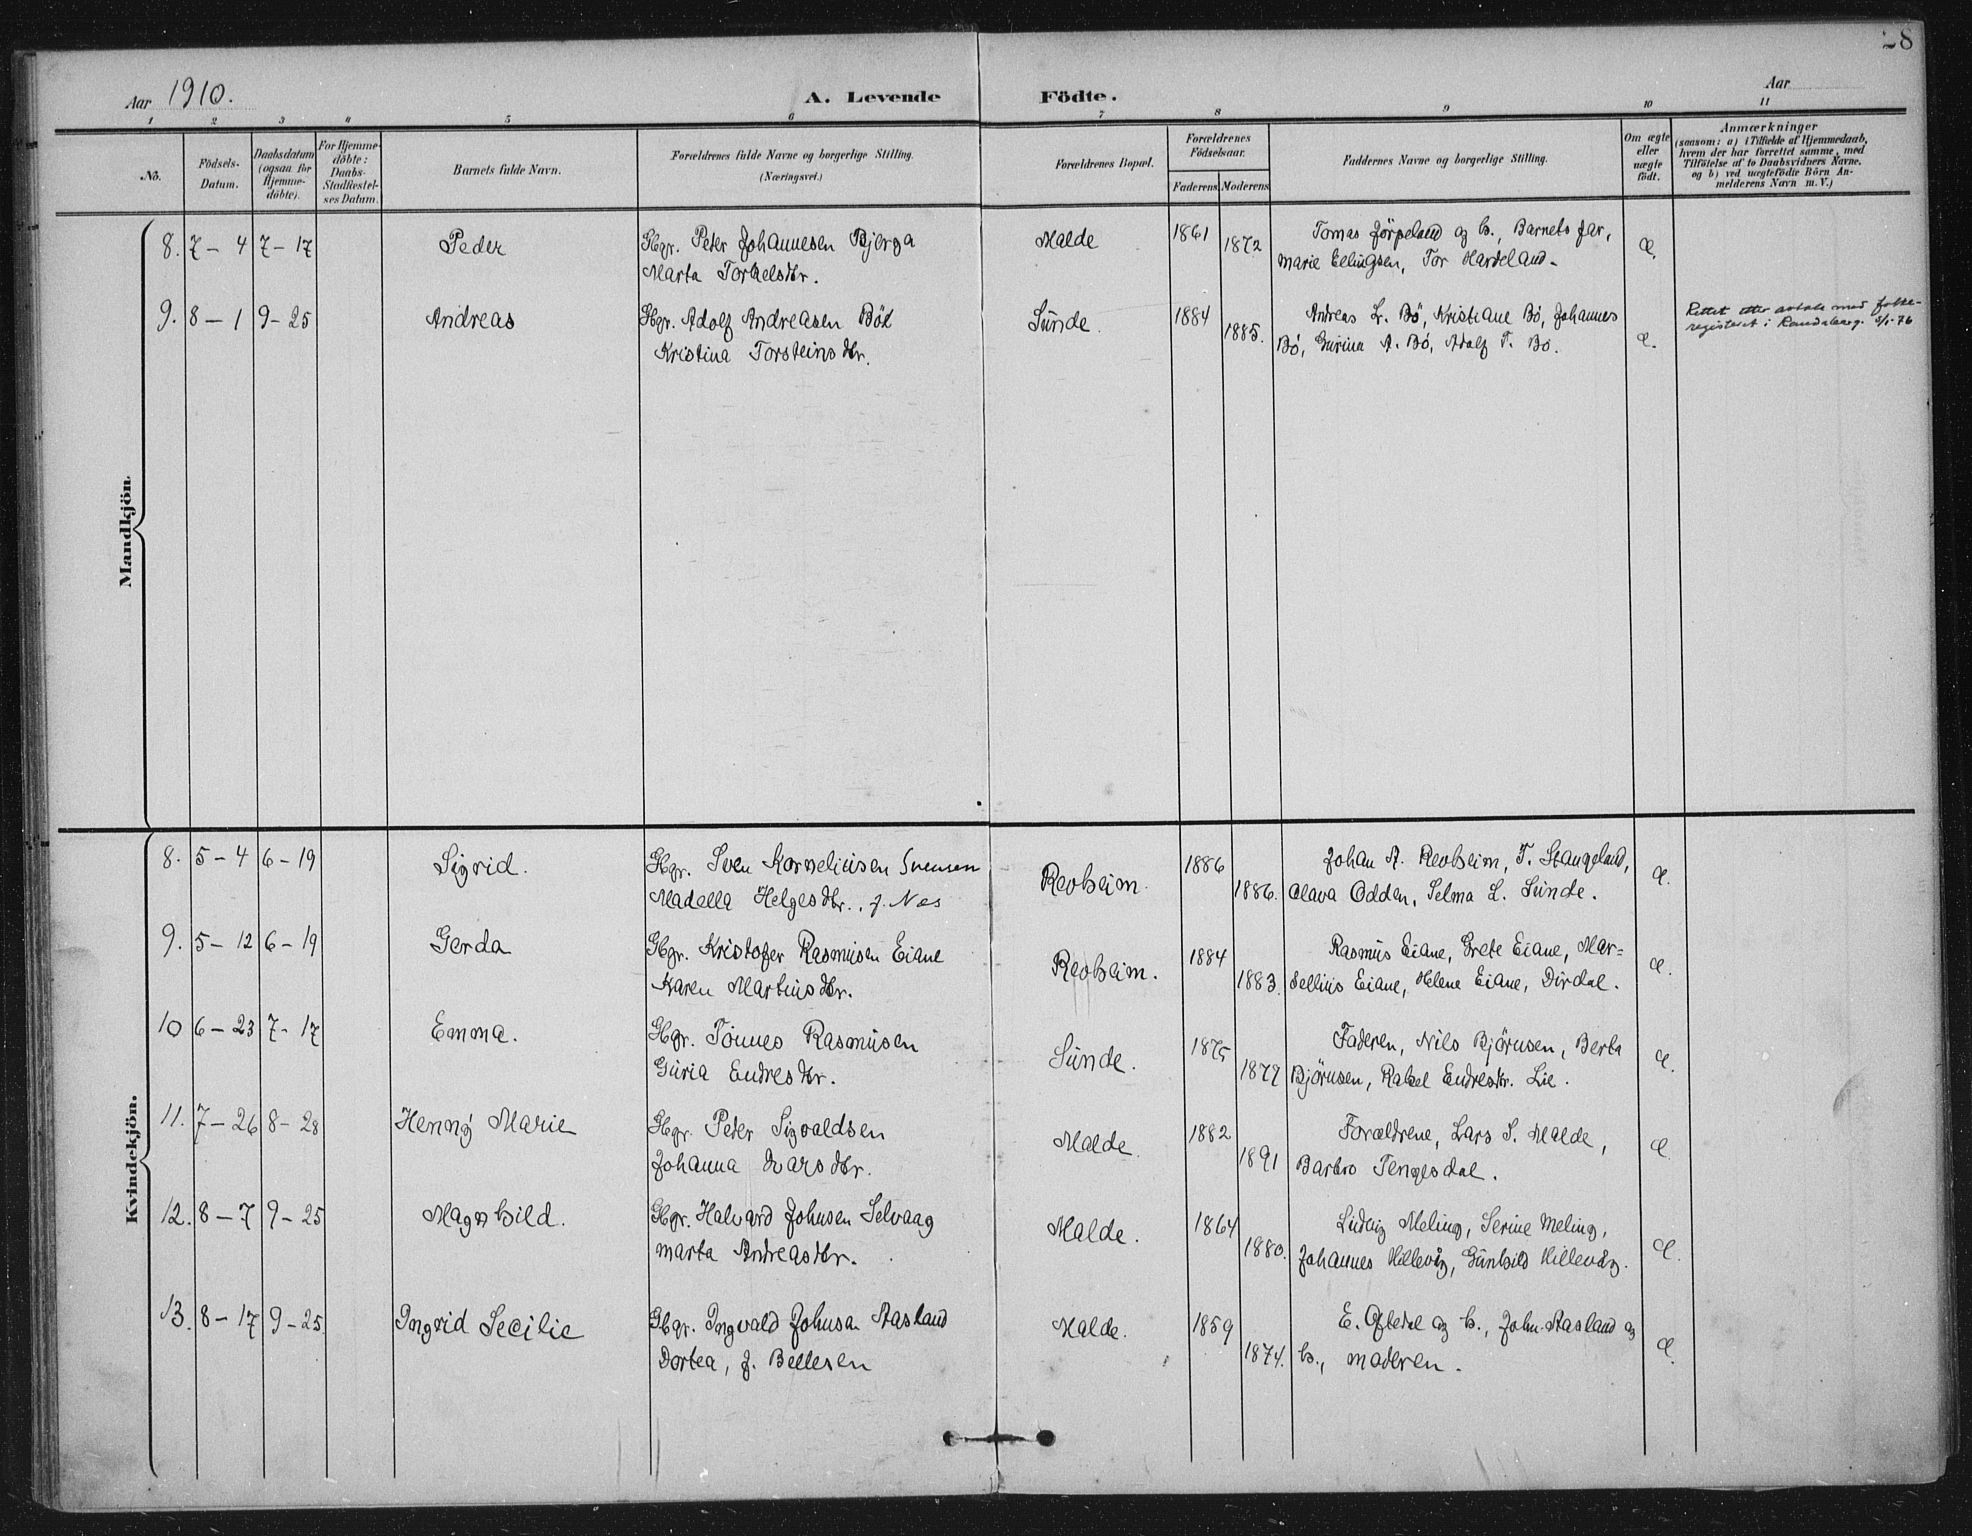 28
Aar 1910.
A. Levende Födte.
Aar
1 2 3 4 5 6 7 8 9 10 11
No.
Födsels-Datum.
Daabsdatum (ogsaa for Hjemme-döbte).
For Hjemme-döbte: Daabs-Stadfæstel-ses Datum.
Barnets fulde Navn.
Forældrenes fulde Navne og borgerlige Stilling. (Næringsvei.)
Forældrenes Bopæl.
Forældrenes Födselsaar.
Faderens. Moderens.
Faddernes Navne og borgerlige Stilling.
Om ægte eller uægte födt.
Anmærkninger
(saasom: a) i Tilfælde af Hjemmedaab, hvem der har forrettet samme, med Tilföielse af to Daabsvidners Navne, og b) ved uægtefödte Börn An-melderens Navn m. V.)
Mandkjön.
8. 7-4 7-17 Peder Gbgr. Peter Johannesen Bjerga Malde 1861 Tomas Jørpeland og h., Barnets far,
Marta Torkelsdtr. 1872 Marie Ellingsen, Tor Hardeland. Æ.
9. 8-1 9-25 Andreas Gbgr. Adolf Andreasen Böe Sunde. 1884 Andreas L. Bø, Kristiane Bø, Johannes
Kristina Torsteinsdtr. 1885. Bø, Gurina A. Bø, Adolf T. Bø. Æ.
Rettet etter avtale med folke-
registeret i Randaberg. 3/1-76
Kvindekjön.
8. 5-4 6-19 Sigrid. Gbgr. Sven Korneliusen Svensen Revheim. 1886 Johan A. Revheim, T. Stangeland,
Madella Helgesdtr., f. Næs 1886. Olava Odden, Selma L. Sunde. Æ.
9. 5-12 6-19 Gerda Gbgr. Kristofer Rasmusen Eiane Revheim. 1884 Rasmus Eiane, Grete Eiane, Mar=
Karen Martinsdtr. 1883. sellius Eiane, Helene Eiane, Dirdal. Æ.
10 6-23 7-17 Emma. Gbgr. Tønnes Rasmusen Sunde. 1875 Faderen, Nils Bjørnsen, Berta
Guria Endresdtr. 1879 Bjørnsen, Rakel Endresdtr. Lie. Æ.
11. 7-26 8-28 Henny Marie Gbgr. Peter Sigvaldsen Malde. 1882 Forældrene, Lars S. Malde,
Johanna Larsdtr. 1891 Barbro Tengesdal. Æ.
12. 8-7 9-25 Magnhild. Gbgr. Halvard Johnsen Selvaag Malde. 1864 Ludvig Meling, Serine Meling,
Marta Andreasdtr. 1880. Johannes Hillevåg, Gunhild Hillevåg. Æ.
13. 8-17 9-25. Ingrid Secilie Gbgr. Ingvald Johnsen Aasland Malde. 1859 E. Oftedal og h., John Aasland og
Dortea, f. Bellesen 1874. h., Moderen. Æ.